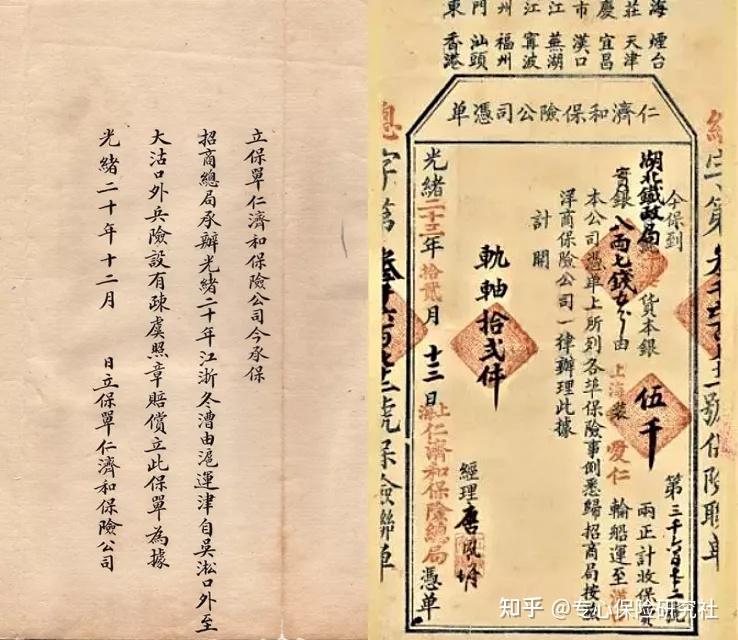 立保單仁濟和保險公司今承保
招商總局承辦光緒二十年江浙冬漕由滬運津自吳淞口外至
大沽口外兵險設有疎虞照章賠償立此保單為據
光緒二十年十二月 日立保單仁濟和保險公司
海 煙台
莊 天津
慶 宜昌
市 漢口
江 蕪湖
江 寧波
州 福州
門 汕頭
東 香港
仁濟和保險公司憑單
總字第 號保險聯單
第三千六百
今保到
湖北鐵政局 貨本銀 伍千 兩正計收保
實銀 八兩七錢五分 由 上海 裝 愛仁 輪船運至漢
本公司憑單上所列各埠保險事例悉歸招商局按
洋商保險公司一律辦理此據
計開
軌軸拾弍件
經理唐鳳墀
光緒二十三年拾貳月十三日上海仁濟和保險總局憑單
總字第 號保險聯單
知乎 @专心保险研究社